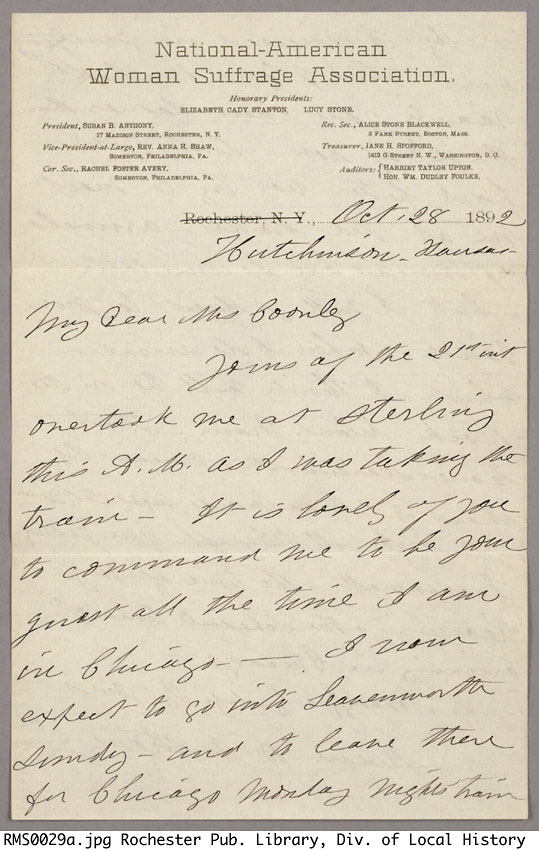 National-American
Woman Suffrage Association.
Honorary Presidents:
ELIZABETH CADY STANTON, LUCY STONE.
President, SUSAN B. ANTHONY,
17 MADISON STREET, ROCHESTER, N. Y.
Vice-President-at-Large, REV. ANNA H. SHAW,
SOMERTON, PHILADELPHIA, PA.
Cor. Sec., RACHEL FOSTER AVERY,
SOMERTON, PHILADELPHIA, PA.
Rec. Sec., ALICE STONE BLACKWELL,
3 PARK STREET, BOSTON, MASS.
Treasurer, JANE H. SPOFFORD,
1412 G STREET N. W., WASHINGTON, D. C.
Auditors: { HARRIET TAYLOR UPTON,
HON. WM. DUDLEY FOULKE,
Rochester, N. Y., Oct. 28 1892
Hutchinson - Kansas -
My Dear Mrs Coonley
Yours of the 21st inst
overtook me at Sterling
this A. M. as I was taking the
train - It is lovely of you
to command me to be your
guest all the time I am
in Chicago - — I now
expect to go into Leavenworth
Sunday - and to leave there
for Chicago Monday nights train
RMS0029a.jpg Rochester Pub. Library, Div. of Local History